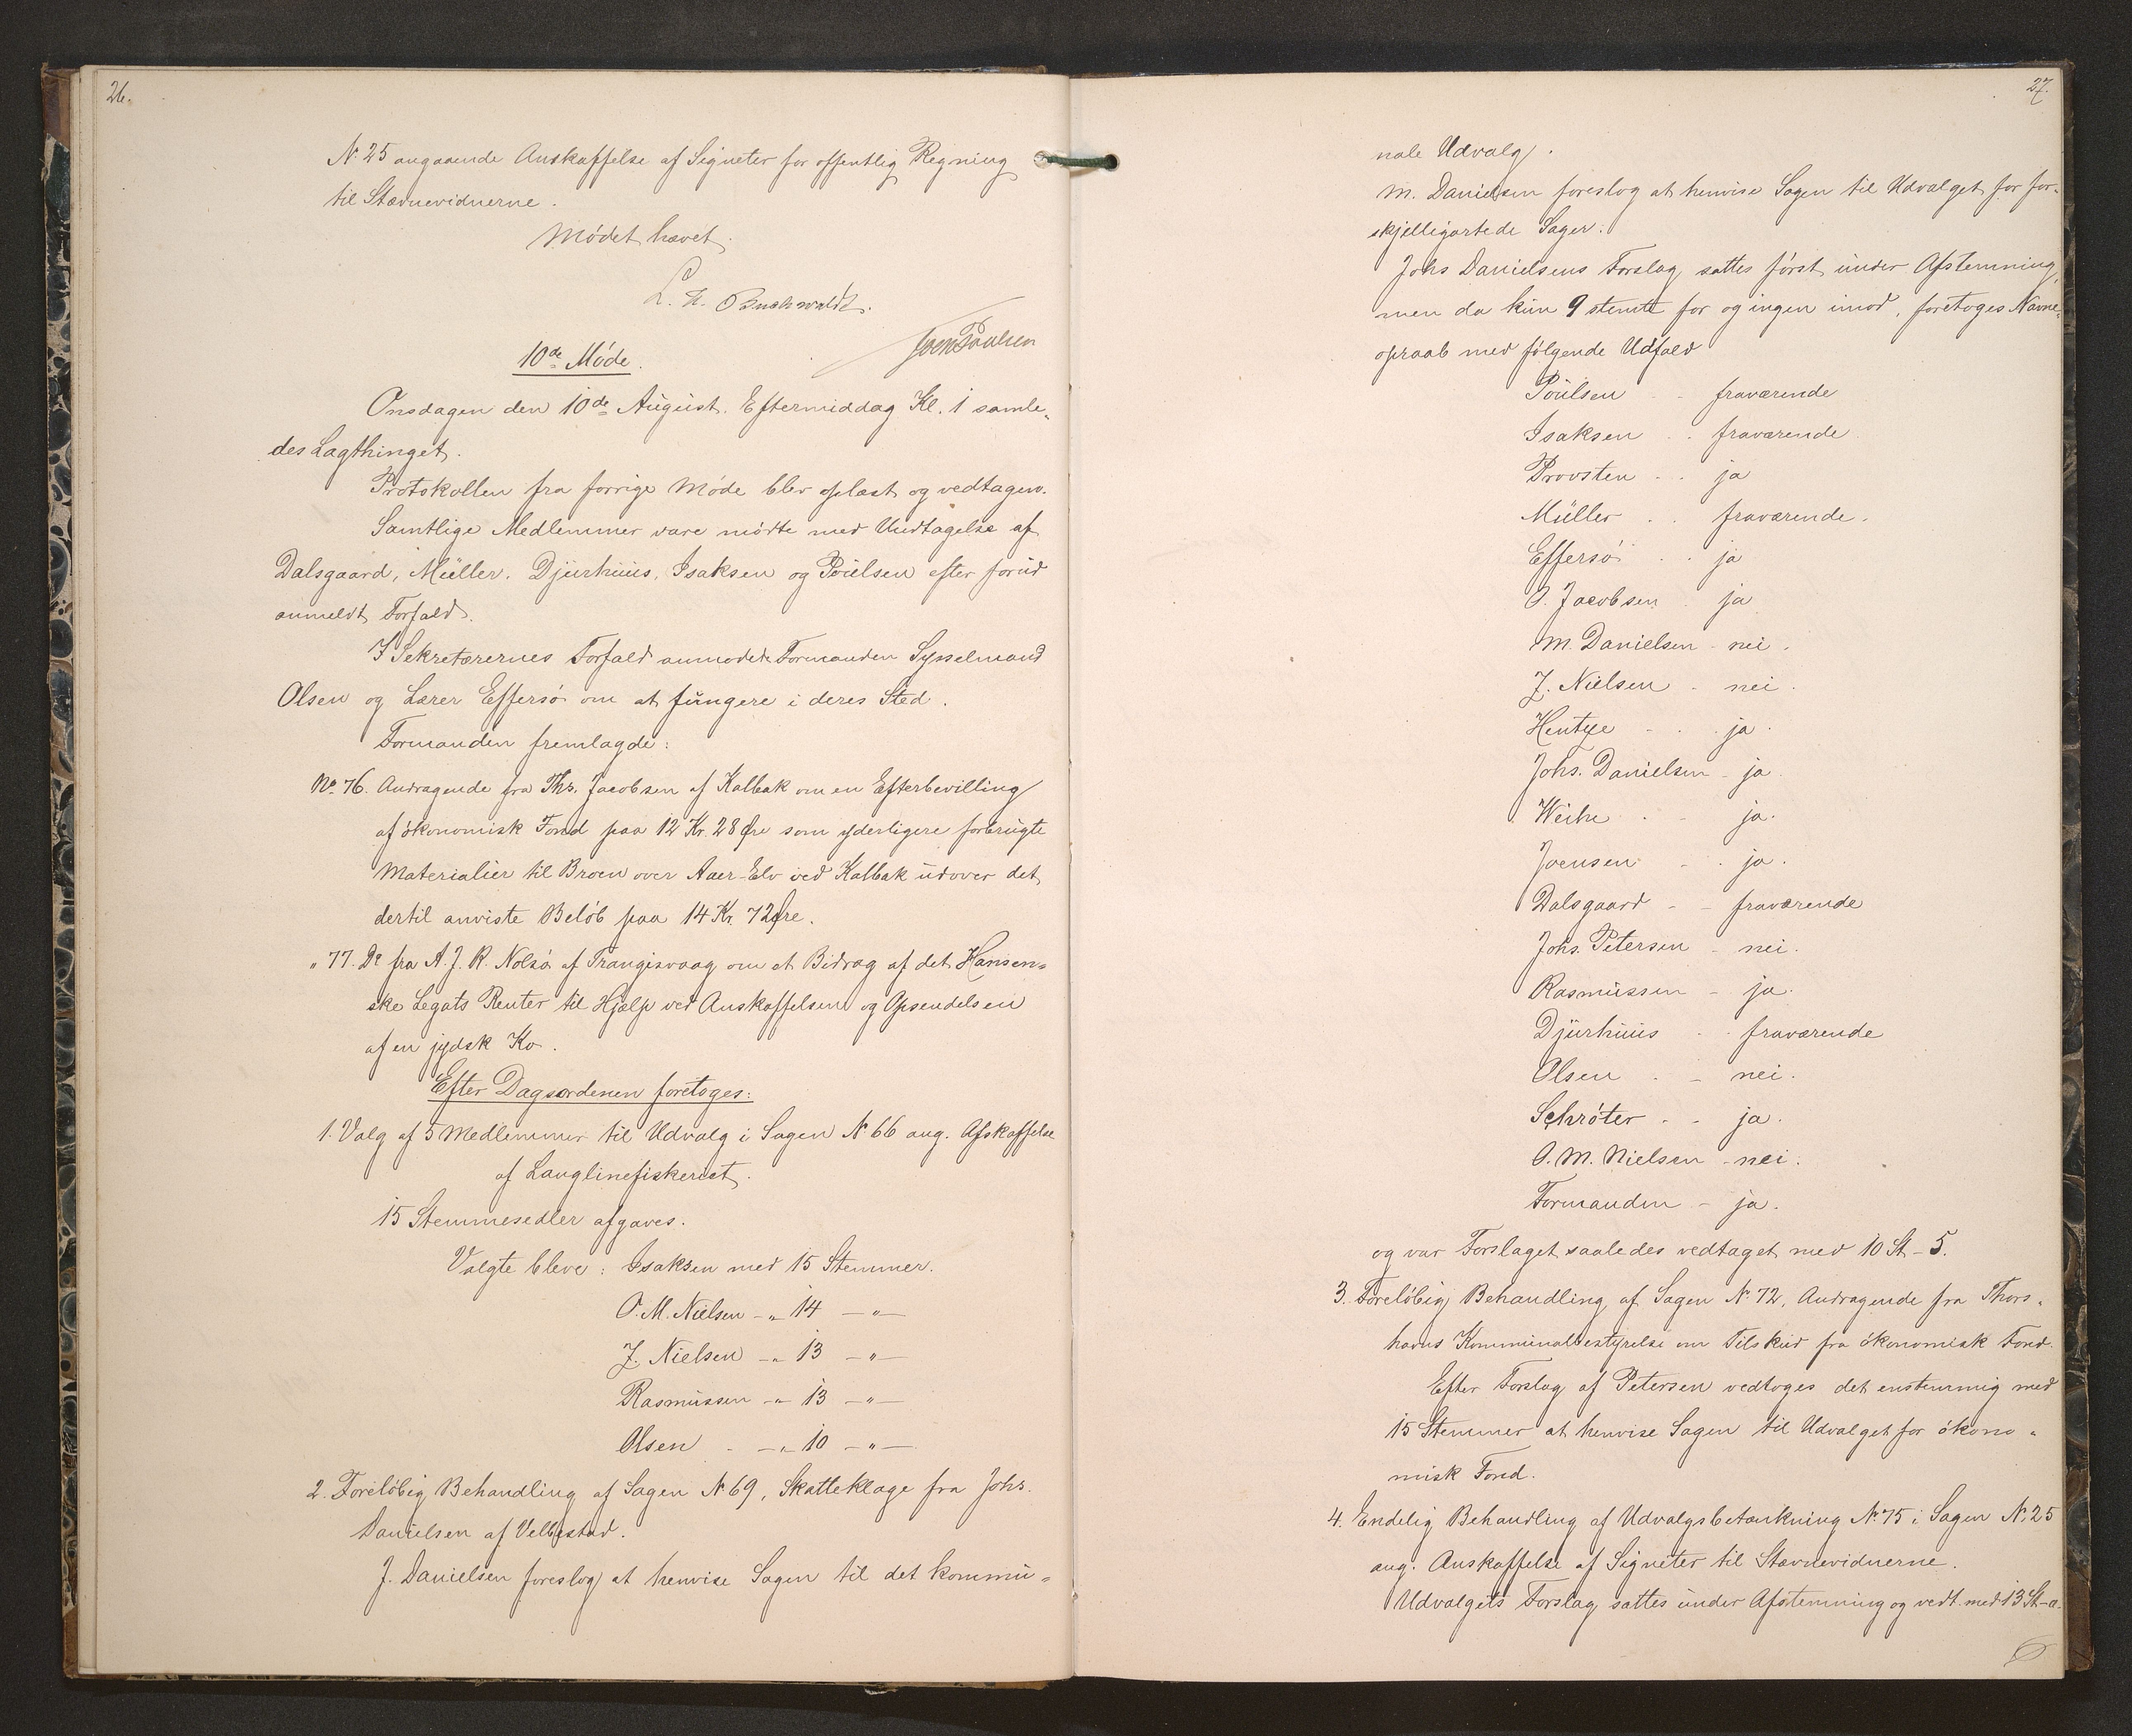 26.
N. 25 angaaende Anskaffelse af Signeter for offentlig Regning
til Stævnevidnerne.
Mödet hævet.
L. E. Buchwaldt.
Joen Poulsen
10de Möde.
Onsdagen den 10de August. Eftermiddag Kl. 1 samle-
des Lagthinget.
Protokollen fra forrige Möde blev oplæst og vedtagen.
Samtlige Medlemmer vare mödte med Undtagelse af
Dalsgaard, Müller, Djurhuus, Isaksen og Poulsen efter forud
anmeldt Forfald.
I Sekretærernes Forfald anmodede Formanden Sysselmand
Olsen og Lærer Effersö om at fungere i deres Sted.
Formanden fremlagde:
No. 76. Andragende fra Ths. Jacobsen af Kalbak om en Efterbevilling
af ökonomisk Fond paa 12 Kr. 28 Öre som yderligere forbrugte
Materialier til Broen over Aaer-Elv ved Kalbak udover det
dertil anviste Belöb paa 14 Kr. 72 Öre.
" 77. Do fra A. J. R. Nolsö af Trangisvaag om et Bidrag af det Hansen-
ske Legats Renter til Hjælp ved Anskaffelsen og Opsendelsen
af en jydsk Ko.
Efter Dagsordenen foretoges:
1. Valg af 5 Medlemmer til Udvalg i Sagen No 66 ang. Afskaffelse
af Langlinefiskeriet.
15 Stemmesedler afgaves.
Valgte bleve: Isaksen med 15 Stemmer.
O. M. Nielsen -"- 14 -"-
J. Nielsen -"- 13 -"-
Rasmussen -"- 13 -"-
Olsen - -"- 10 -"-
2. Forelöbig Behandling af Sagen No 69, Skatteklage fra Johs.
Danielsen af Velbestad.
J. Danielsen foreslog at henvise Sagen til det kommu-
27.
nale Udvalg.
M. Danielsen foreslog at henvise Sagen til Udvalget for for-
skjelligartede Sager.
Johs Danielsens Forslag sattes först under Afstemning,
men da kun 9 stemte for og ingen imod, foretoges Navne-
opraab med fölgende Udfald
Poulsen - - fraværende
Isaksen - - fraværende
Provsten - - ja
Müller - - fraværende.
Effersö - - ja
O. Jacobsen - ja
M. Danielsen - nei.
J. Nielsen - nei.
Hentze - - - ja.
Johs. Danielsen - ja.
Weihe - - ja.
Joensen - - ja.
Dalsgaard - - fraværende
Johs. Petersen - nei.
Rasmussen - ja.
Djurhuus - - fraværende
Olsen - - nei.
Schröter - - ja.
O. M. Nielsen - nei.
Formanden - ja.
og var Forslaget saaledes vedtaget med 10 St - 5.
3. Forelöbig Behandling af Sagen No 72, Andragende fra Thors-
havns Kommunalbestyrelse om Tilskud fra ökonomisk Fond.
Efter Forslag af Petersen vedtoges det enstemmig med
15 Stemmer at henvise Sagen til Udvalget for ökono-
misk Fond.
4. Endelig Behandling af Udvalgsbetænkning No 75 i Sagen No 25
ang. Anskaffelse af Signeter til Stævnevidnerne.
Udvalgets Forslag sattes under Afstemning og vedt. med 13 St - 0.